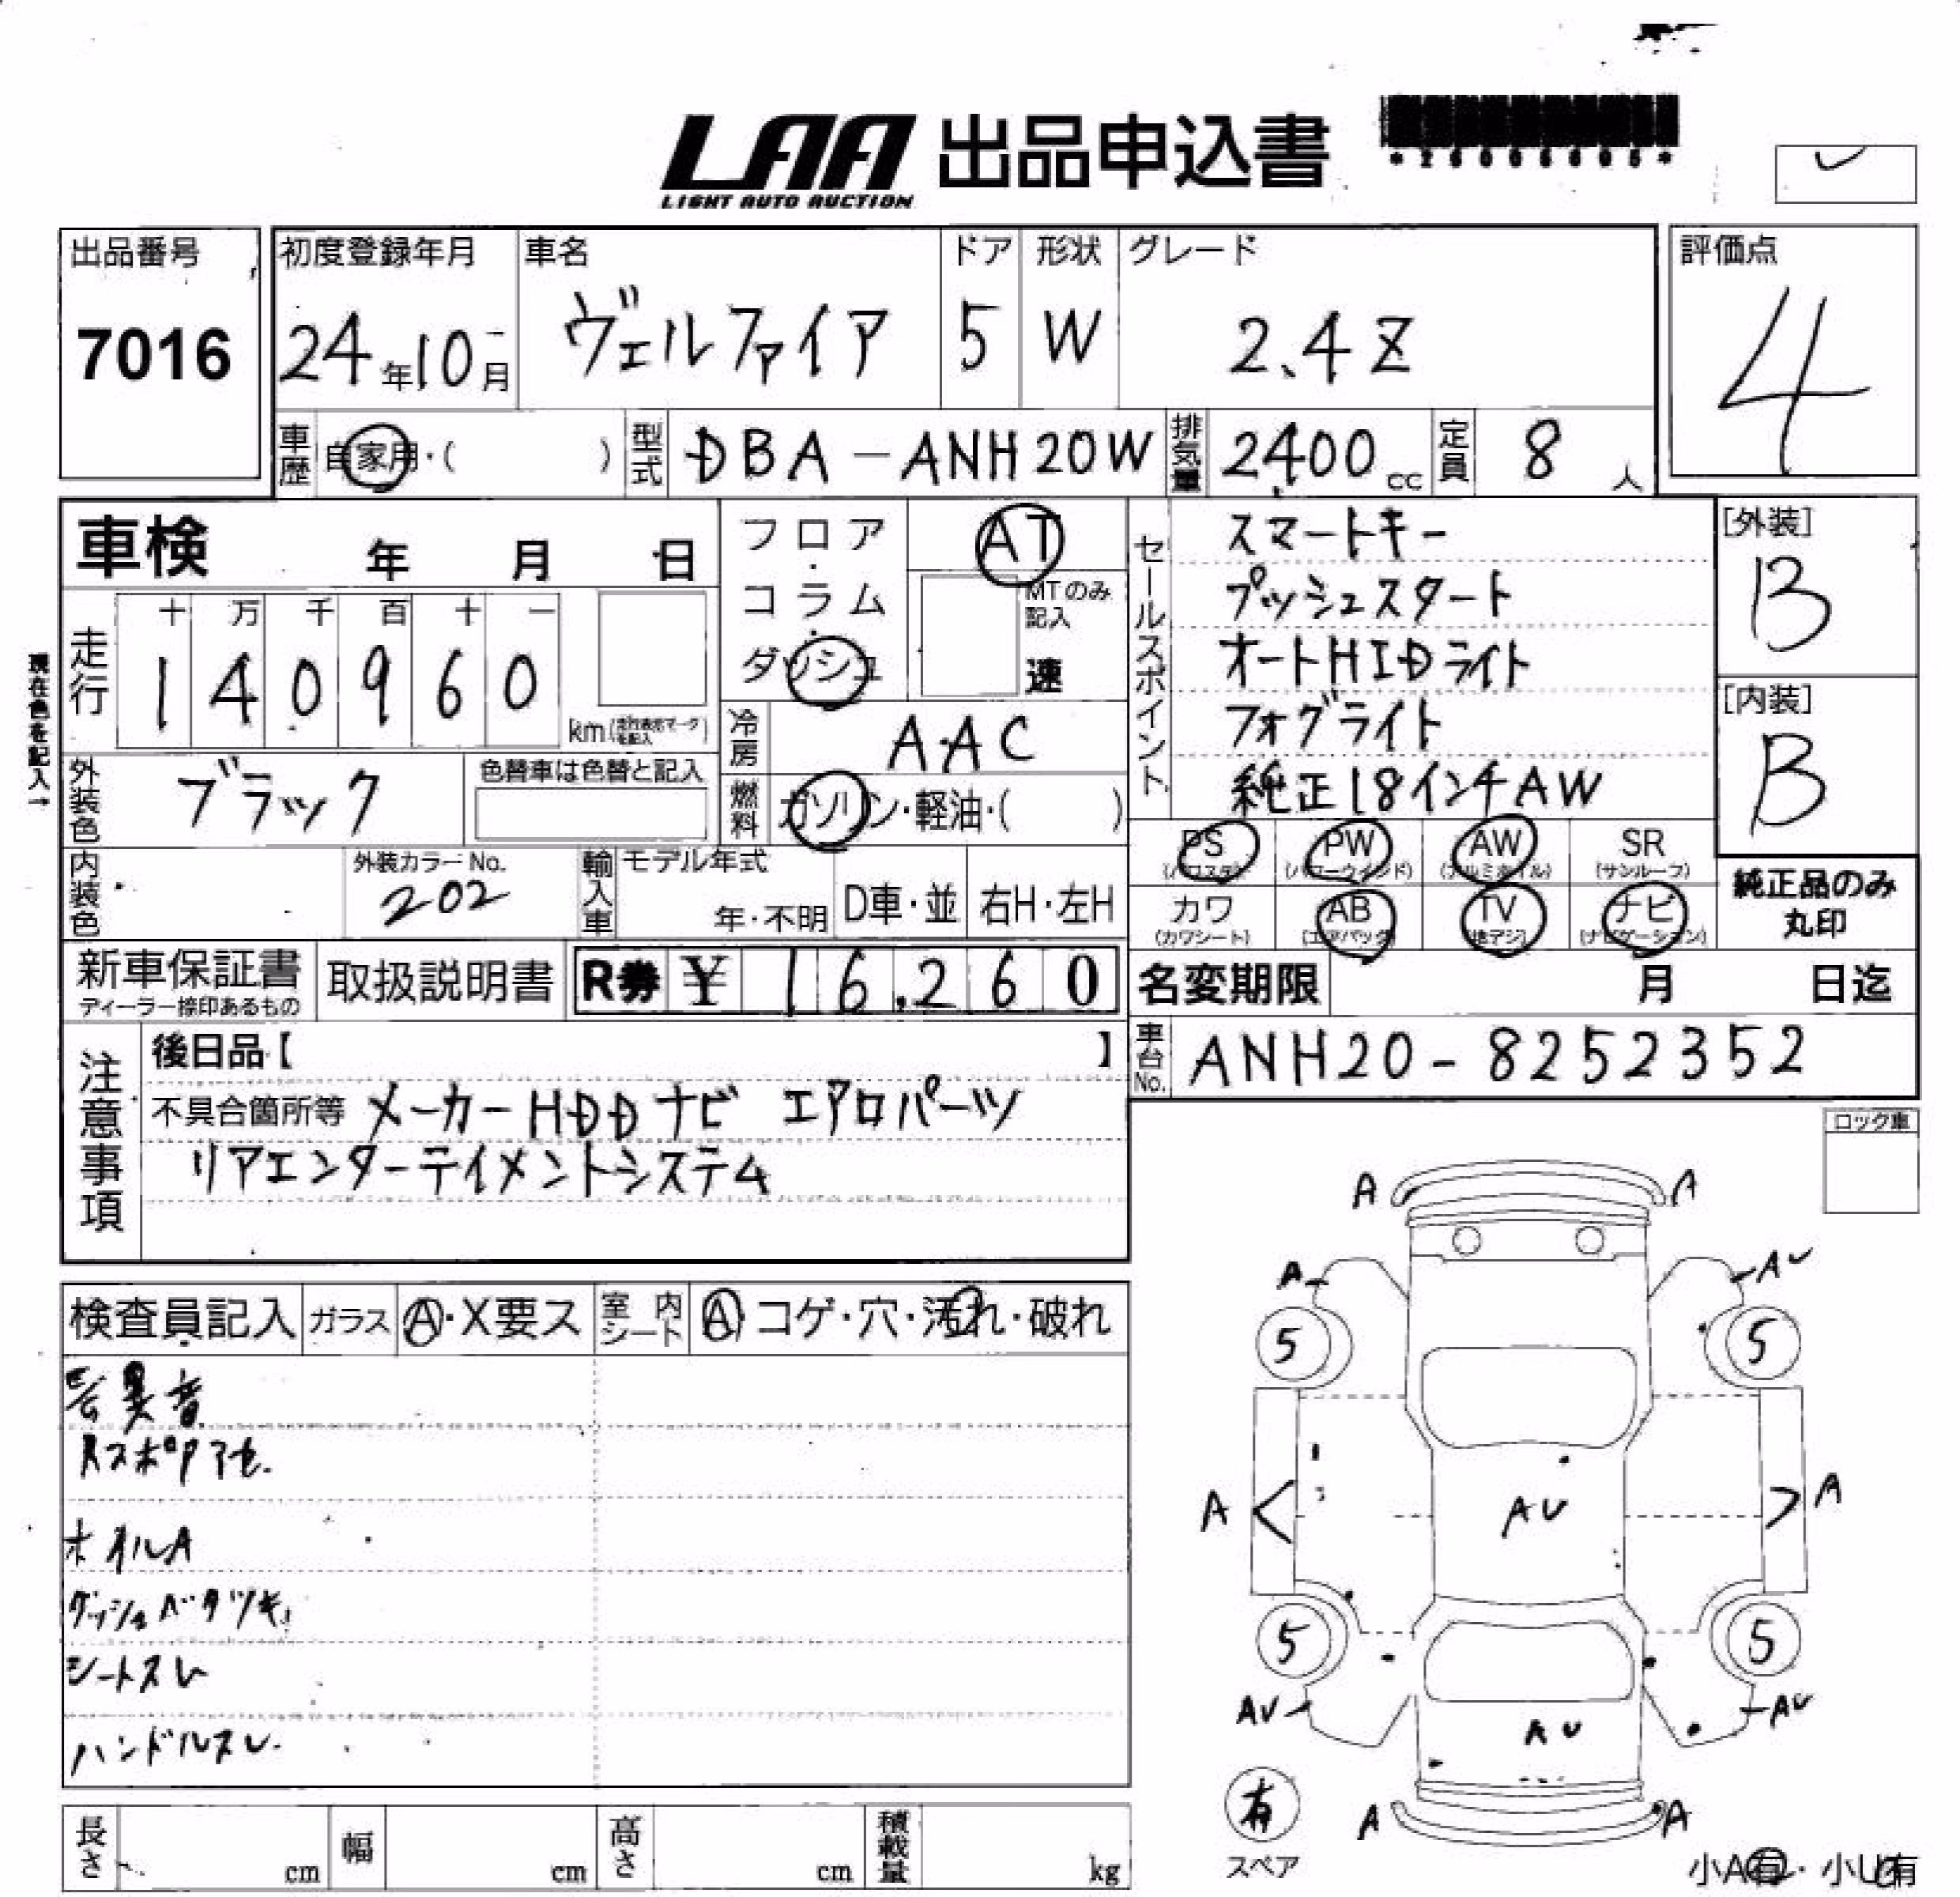 LAA 出品申込書
LIGHT AUTO AUCTION
出品番号
7016
初度登録年月
24年10月
車名
ヴェルファイア
ドア
5
形状
W
グレード
2.4Z
評価点
4
車歴 自家用・( )
型式 DBA-ANH20W
排気量 2400cc
定員 8人
車検 年 月 日
フロア・コラム・ダッシュ
AT
MTのみ記入
速
セールスポイント
スマートキー
プッシュスタート
オートHIDライト
フォグライト
純正18インチAW
[外装]
B
[内装]
B
現在色を記入→
走行
十 万 千 百 十 一
1 4 0 9 6 0
km
冷房 AAC
外装色 ブラック
色替車は色替と記入
燃料 ガソリン・軽油・( )
内装色
外装カラーNo.
202
輸入車
モデル年式
年・不明
D車・並
右H・左H
PS
(パワステ)
PW
(パワーウインド)
AW
(アルミホイル)
SR
(サンルーフ)
カワ
(カワシート)
AB
(エアバック)
TV
(地デジ)
ナビ
(ナビゲーション)
純正品のみ
丸印
新車保証書
ディーラー捺印あるもの
取扱説明書
R券 ¥16,260
名変期限 月 日迄
車台No. ANH20-8252352
注意事項
後日品【 】
不具合箇所等 メーカーHDDナビ エアロパーツ
リアエンターテイメントシステム
ロック車
検査員記入
ガラス A・X要ス
室内シート A コゲ・穴・汚れ・破れ
異音
ホイルA
ダッシュベタツキ
シートスレ
ハンドルスレ
A A
A AU
5 5
A AU A
5 5
AU AU
AU
A A
有
スペア
小A有・小U有
長さ cm
幅 cm
高さ cm
積載量 kg